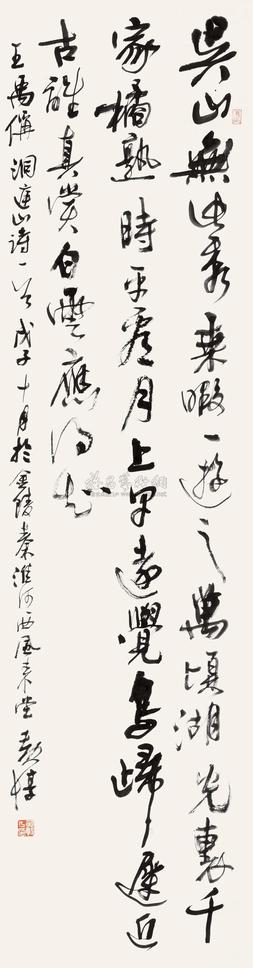 吳山無此秀乘暇一遊之萬頃湖光裏千
家橘熟時平看月上早遠覺鳥歸遲近
古誰真賞白雲應得知
王禹偁洞庭山詩一首戊子十月於金陵秦淮河西風來堂